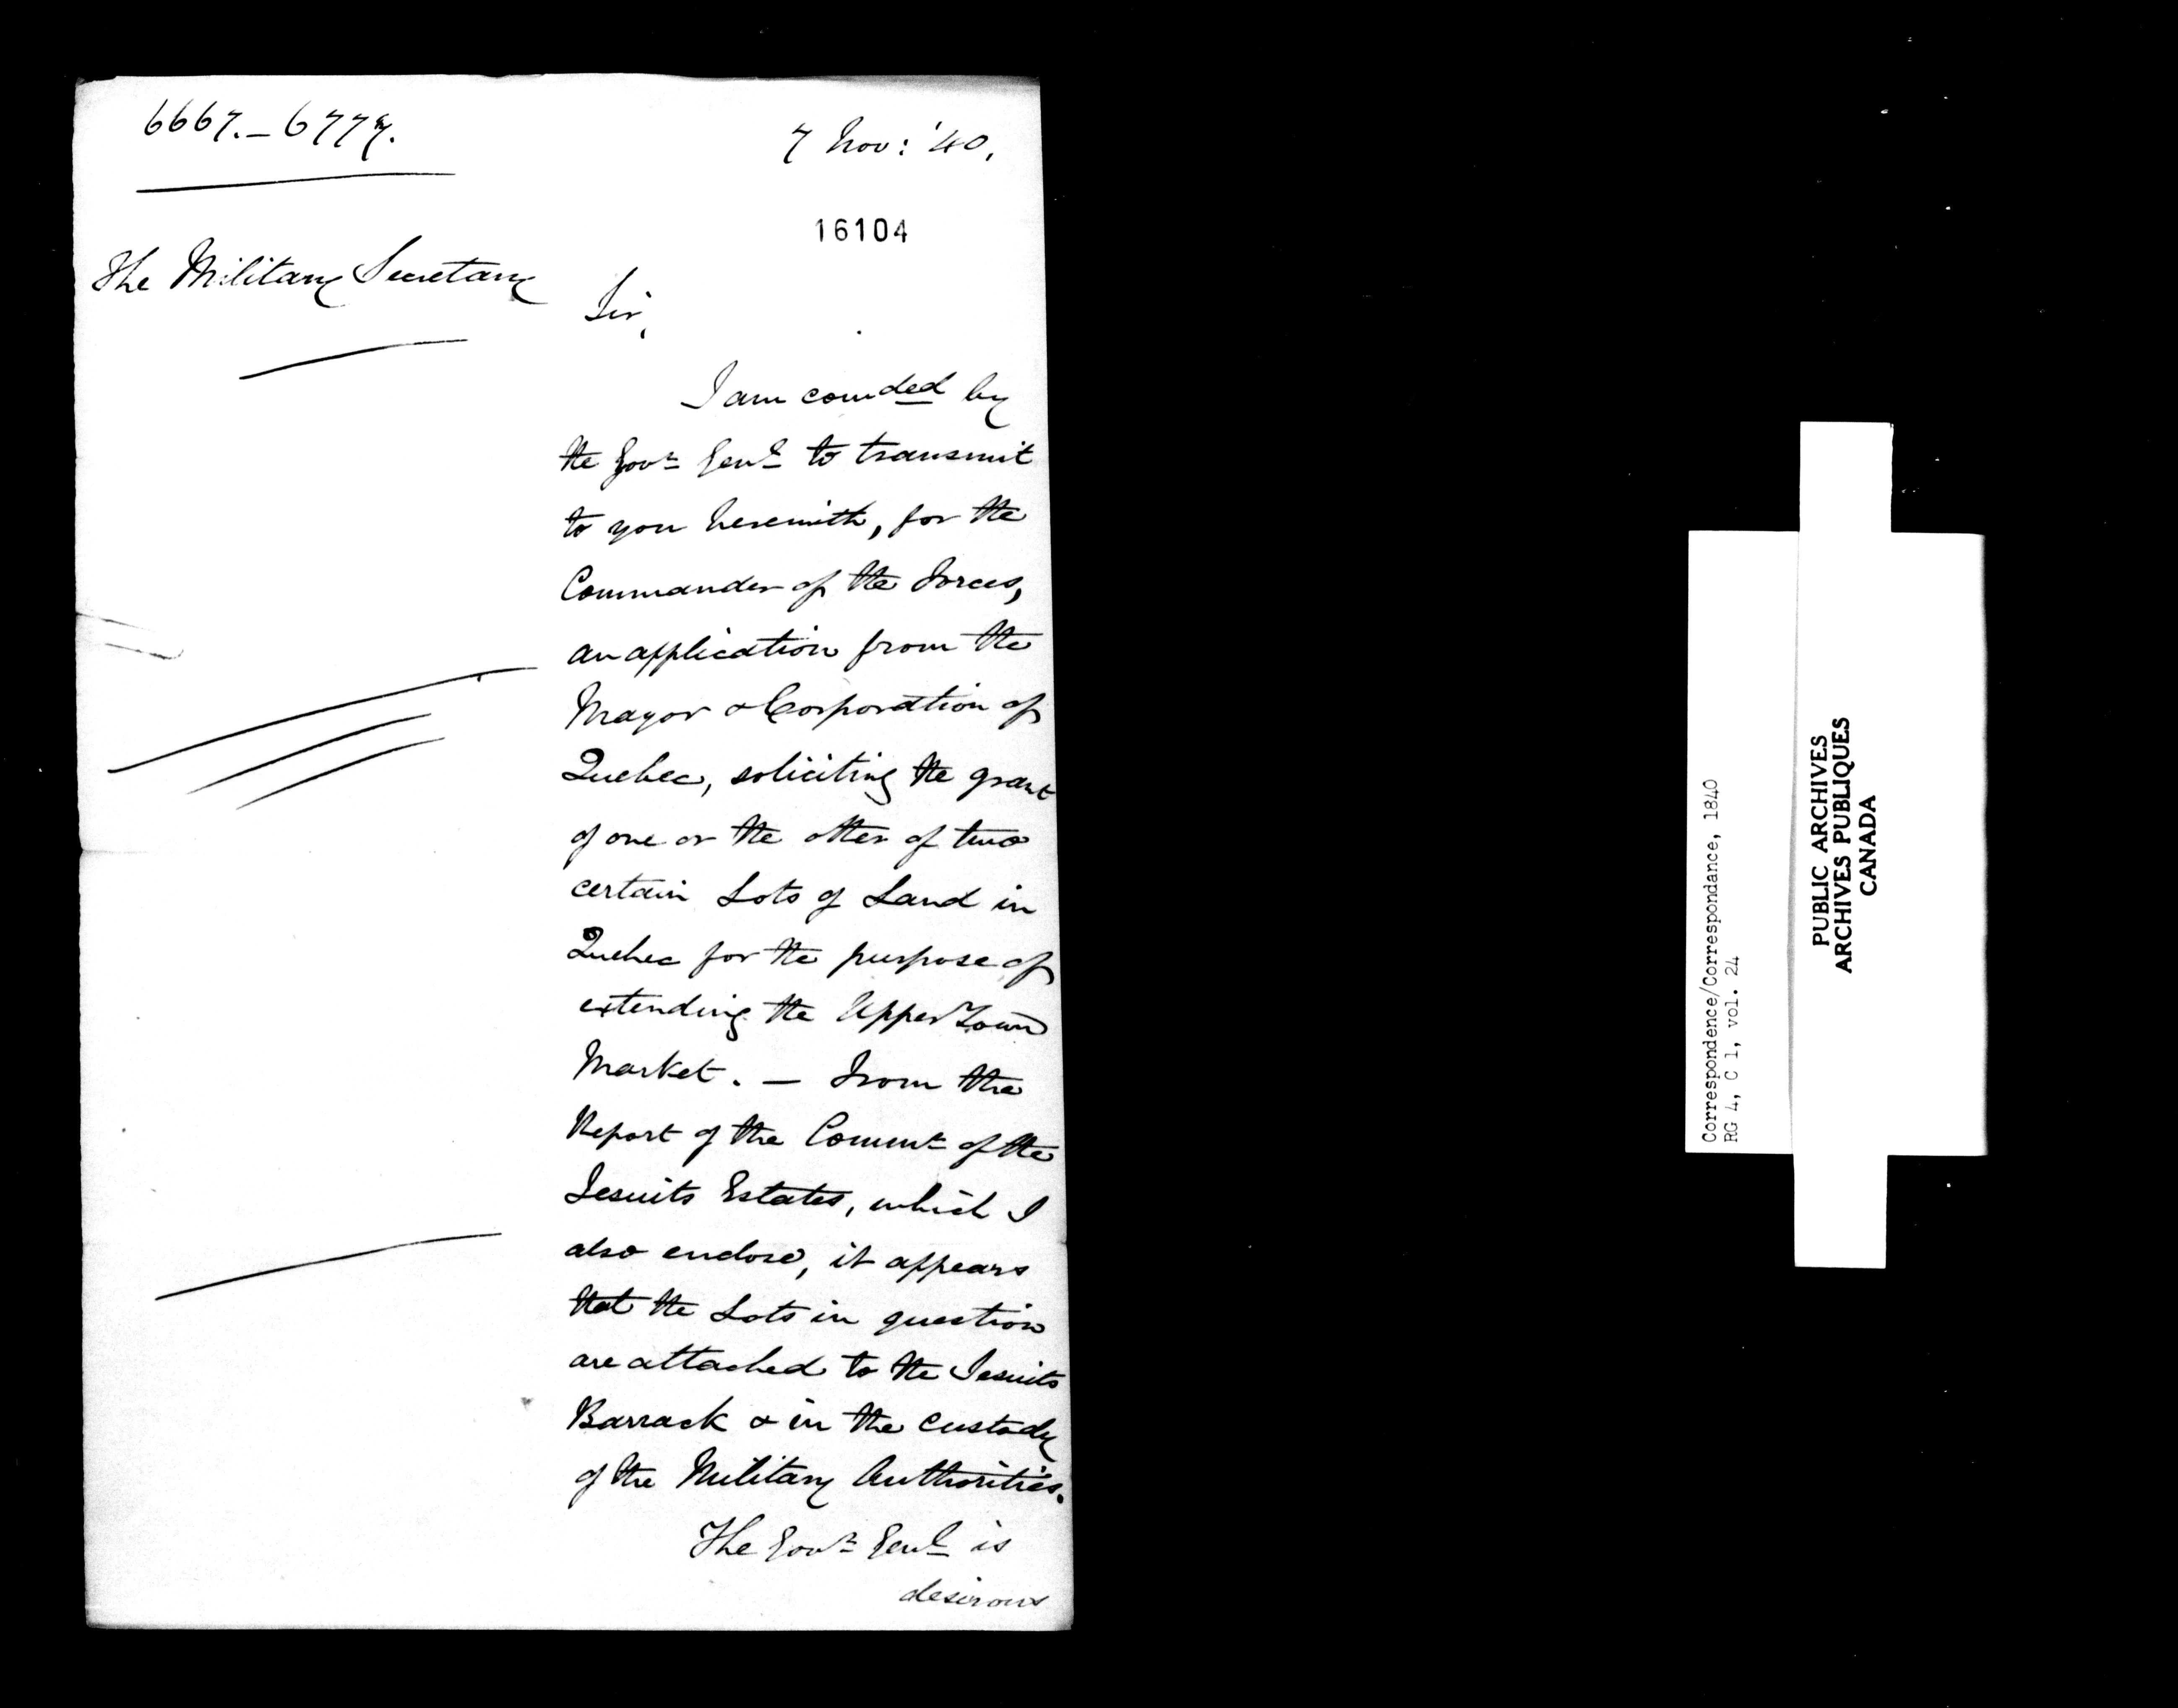 6667.–6777.
7 Nov: '40,
16104
The Military Secretary
Sir,
I am comded by
the Govr Genl to transmit
to you herewith, for the
Commander of the Forces,
an application from the
Mayor & Corporation of
Quebec, soliciting the grant
of one or the other of two
certain Lots of Land in
Quebec for the purpose of
extending the Upper Town
Market. — From the
Report of the Commr of the
Jesuits Estates, which I
also enclose, it appears
that the Lots in question
are attached to the Jesuits
Barrack & in the custody
of the Military Authorities.
The Govr Genl is
desirous
Correspondence/Correspondance, 1840
RG 4, C 1, vol. 24
PUBLIC ARCHIVES
ARCHIVES PUBLIQUES
CANADA